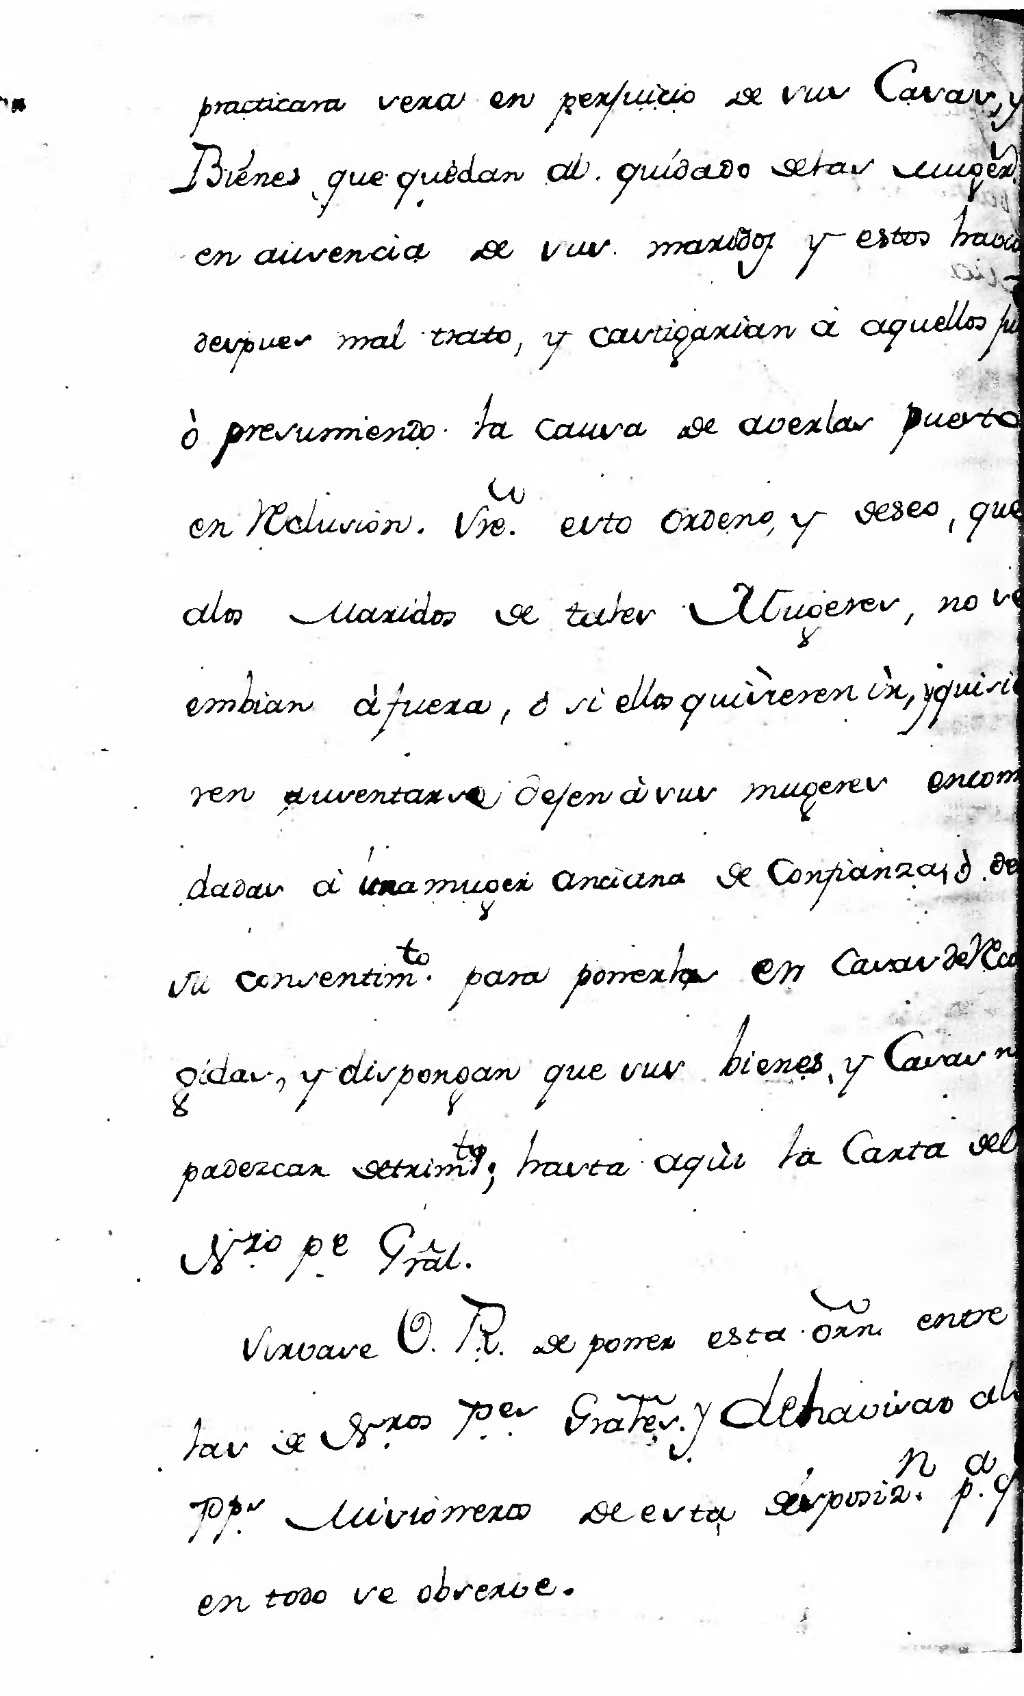 practicara sera en perjuicio de sus Casas, y
Biénes que quèdan al quidado delas Muger
en ausencia de sus maridos y estos havi
despues mal trato, y castigarian à aquellos
ò presumiendo la causa de averlas puesto
en Reclusion. Vre. esto ordeno, y deseo, que
alos Maridos de tales Mugeres, no se
embian à fuera, ò si ellos quisieren ir, y quisie
ren ausentarse dejen à sus mugeres encom
dadas à una muger anciana de Confianza, ò de
su consentimto. para ponerlas en Casas de Reco
gidas, y dispongan que sus bienes, y Casas n
padezcan detrimto; hasta aqùi la Carta del
Nro pe Gral.
Sirvase V. R. de poner esta orn. entre
las de Nros Pes Grales. y de havisar al
PPs Missioneros de esta disposizn. pa q
en todo se observe.